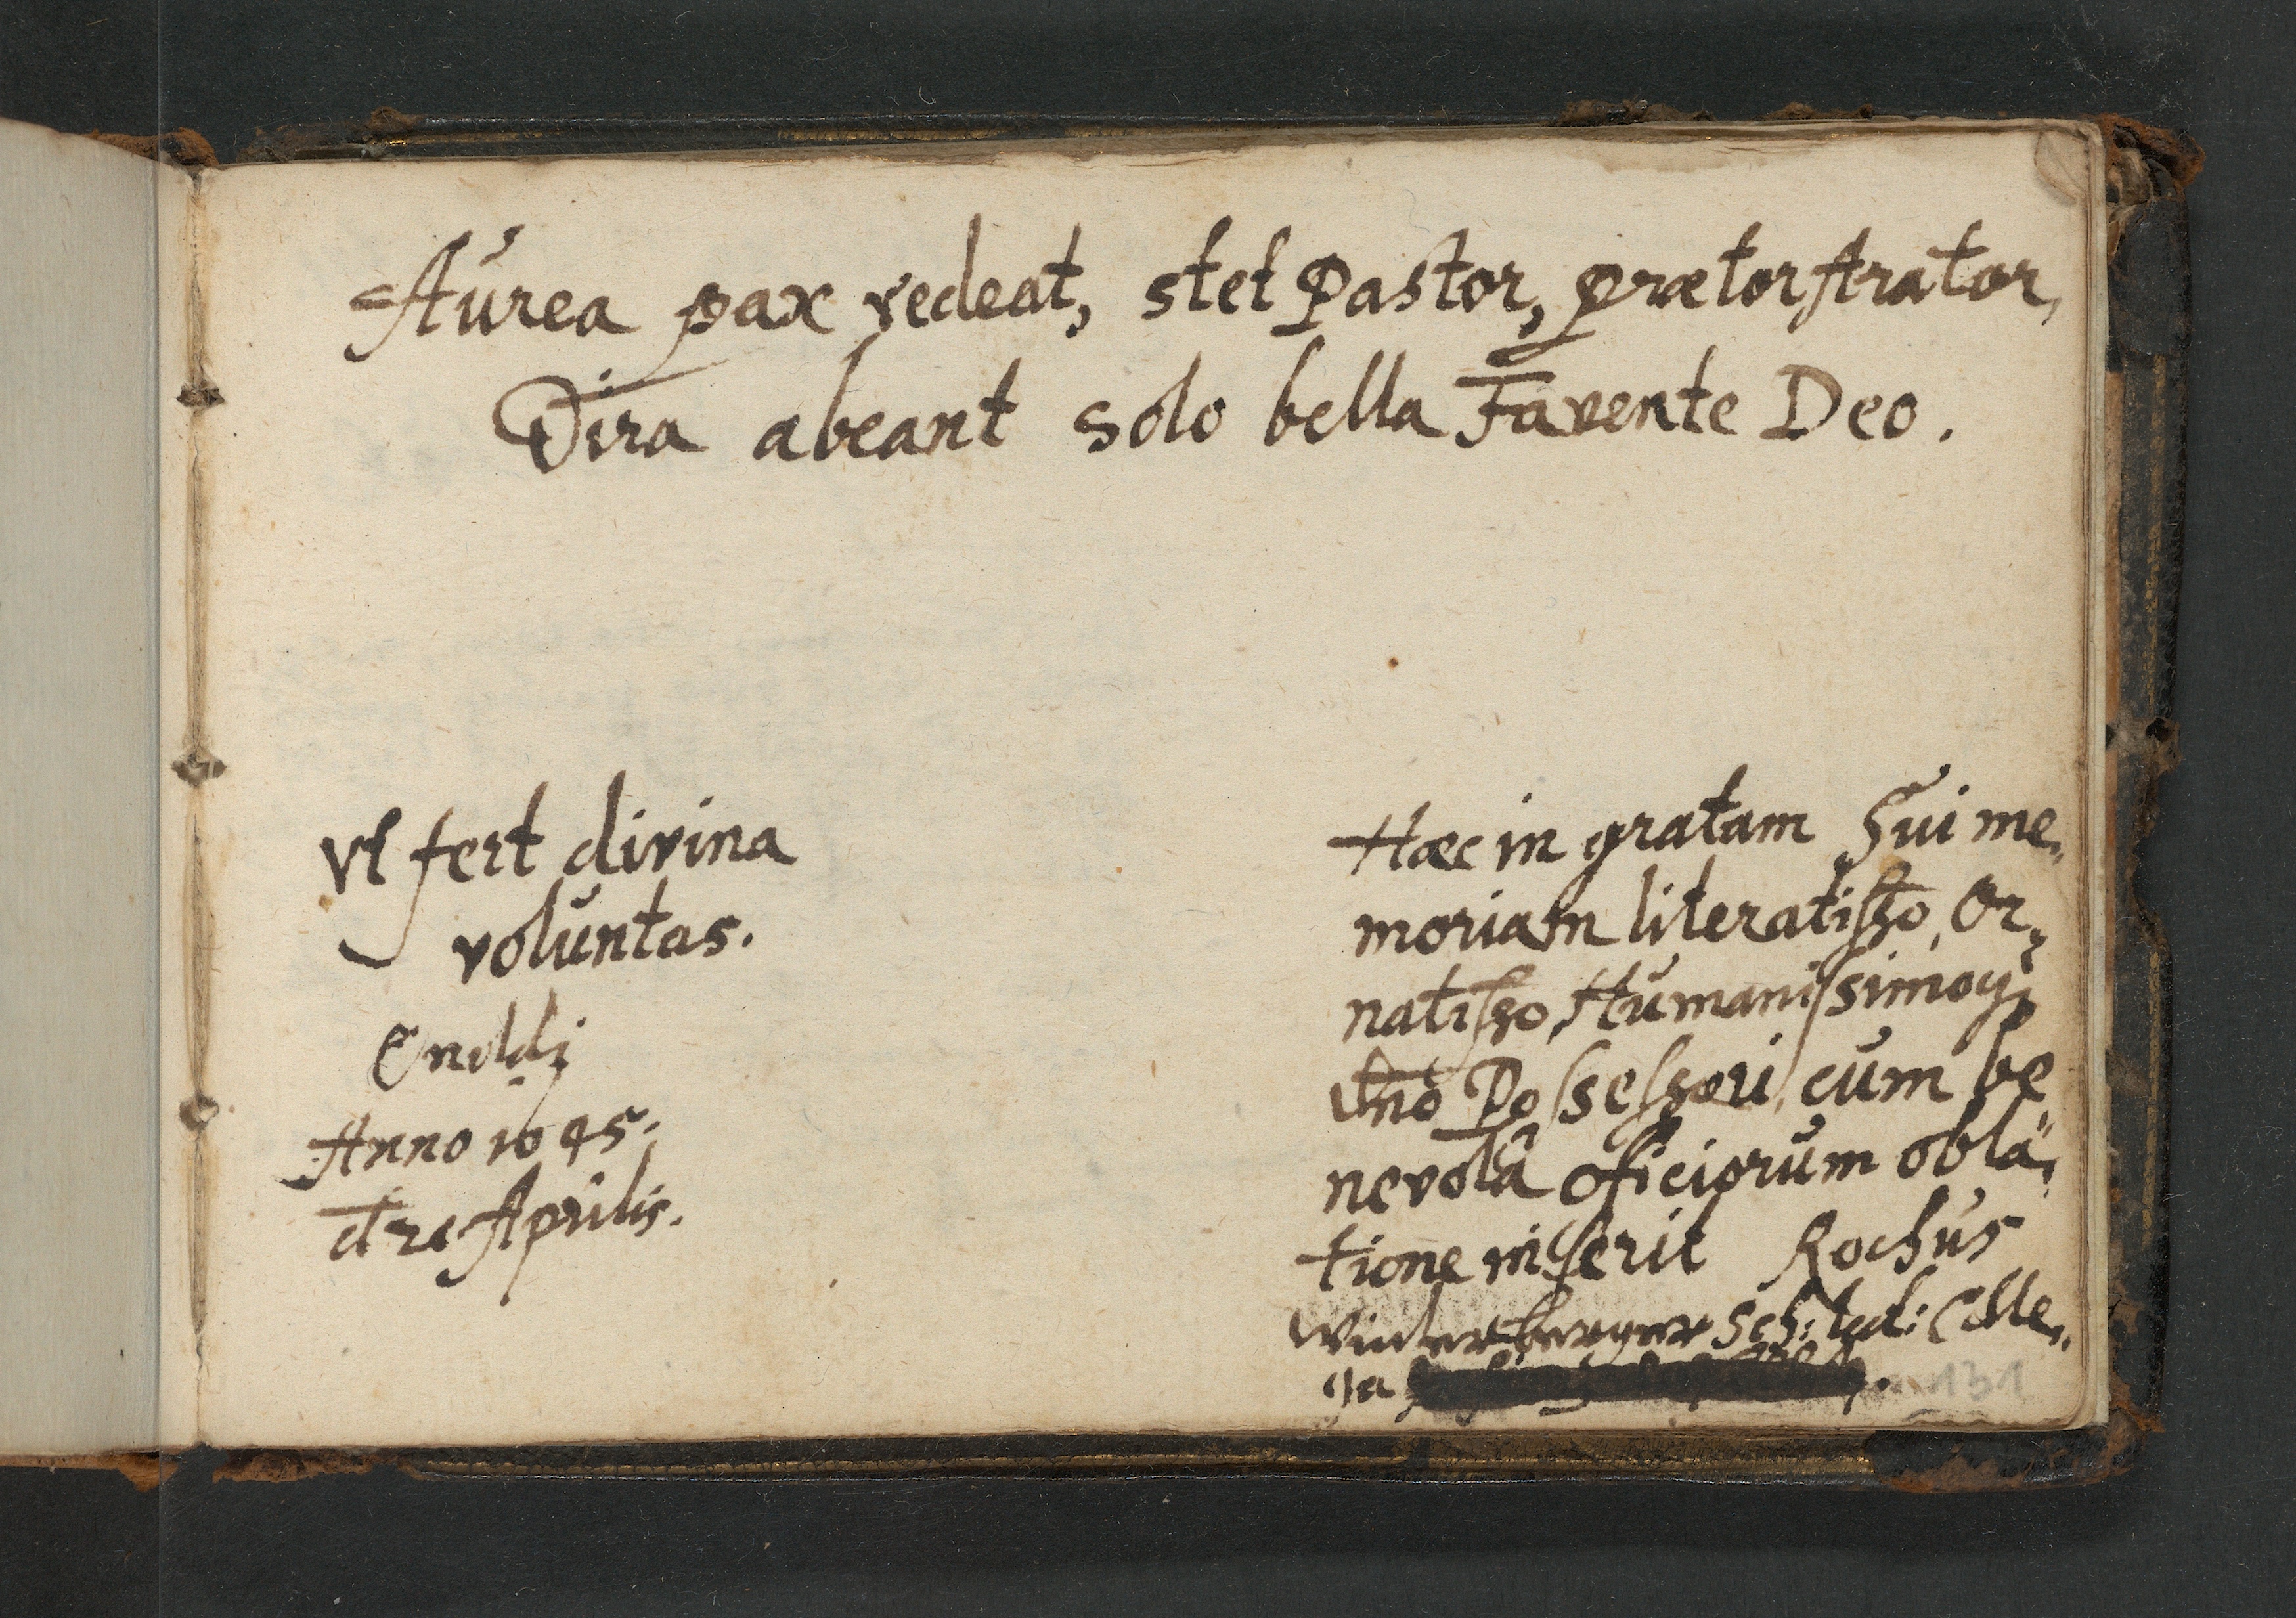 Aurea pax redeat, stet Pastor, prætor Arator,
Dira abeant solo bella Favente Deo.
Vt fert divina
voluntas.
Anno 1645.
Aprilis.
Hæc in gratam Sui me-
moriam literatisso, Or-
natisso, Humanissimoq;
Dno Possessori, cum be
nevolâ oficiorum obla-
tione inserit Rochus
Winterberger Sch: Colle-
ga
131